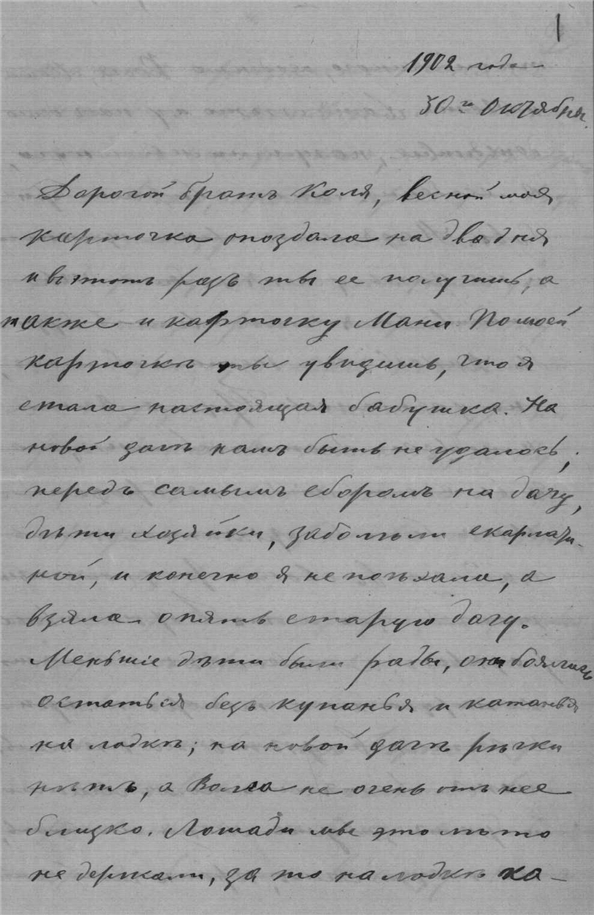 1
1902 года
30го Октября.
Дорогой братъ Коля, весной моя
карточка опоздала на два дня
и въ этотъ разъ ты ее получишь, а
также и карточку Мани По моей
карточкѣ ты увидишь, что я
стала настоящая бабушка. На
новой дачѣ намъ быть не удалось,
передъ самымъ сборомъ на дачу,
дѣти хозяйки, заболѣли скарлати-
ной, и конечно я не поѣхала, а
взяла опять старую дачу.
Меньшіе дѣти были рады, они боялись
остаться безъ купанья и катанья
на лодкѣ; на новой дачѣ рѣчки
нѣтъ, а Волга не очень отъ нее
близко. Лошади мы это лѣто
не держали, за то на лодкѣ ка-